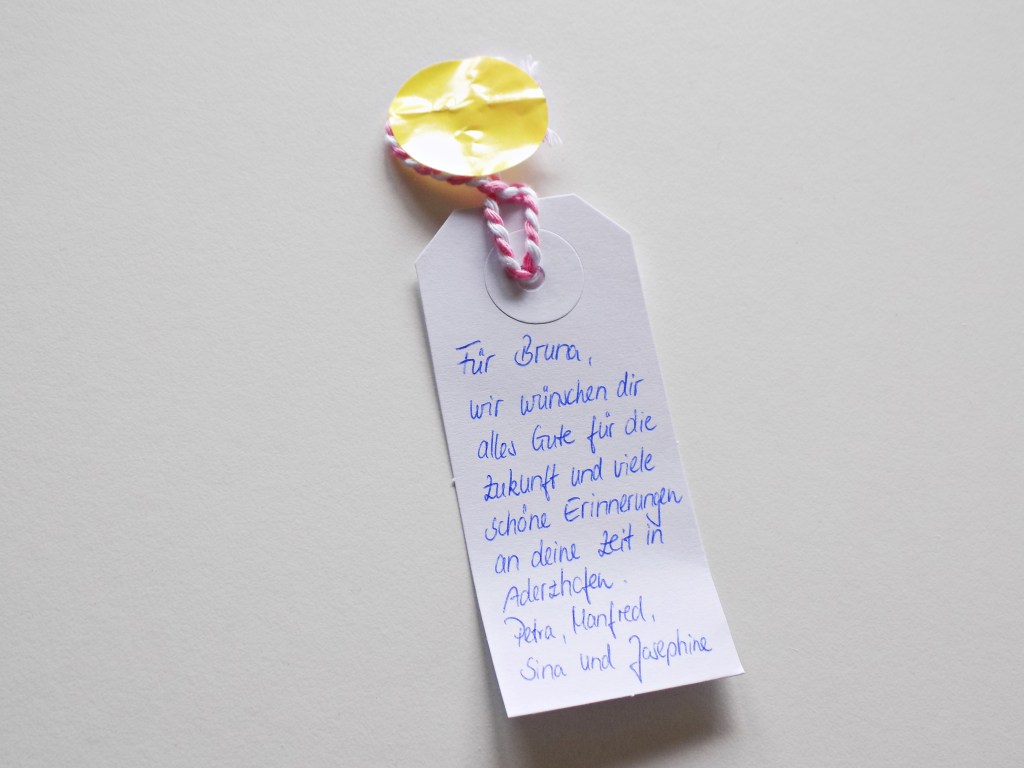 Für Bruna,
wir wünschen dir
alles Gute für die
Zukunft und viele
schöne Erinnerungen
an deine Zeit in
Aderzhofen.
Petra, Manfred,
Sina und Josephine